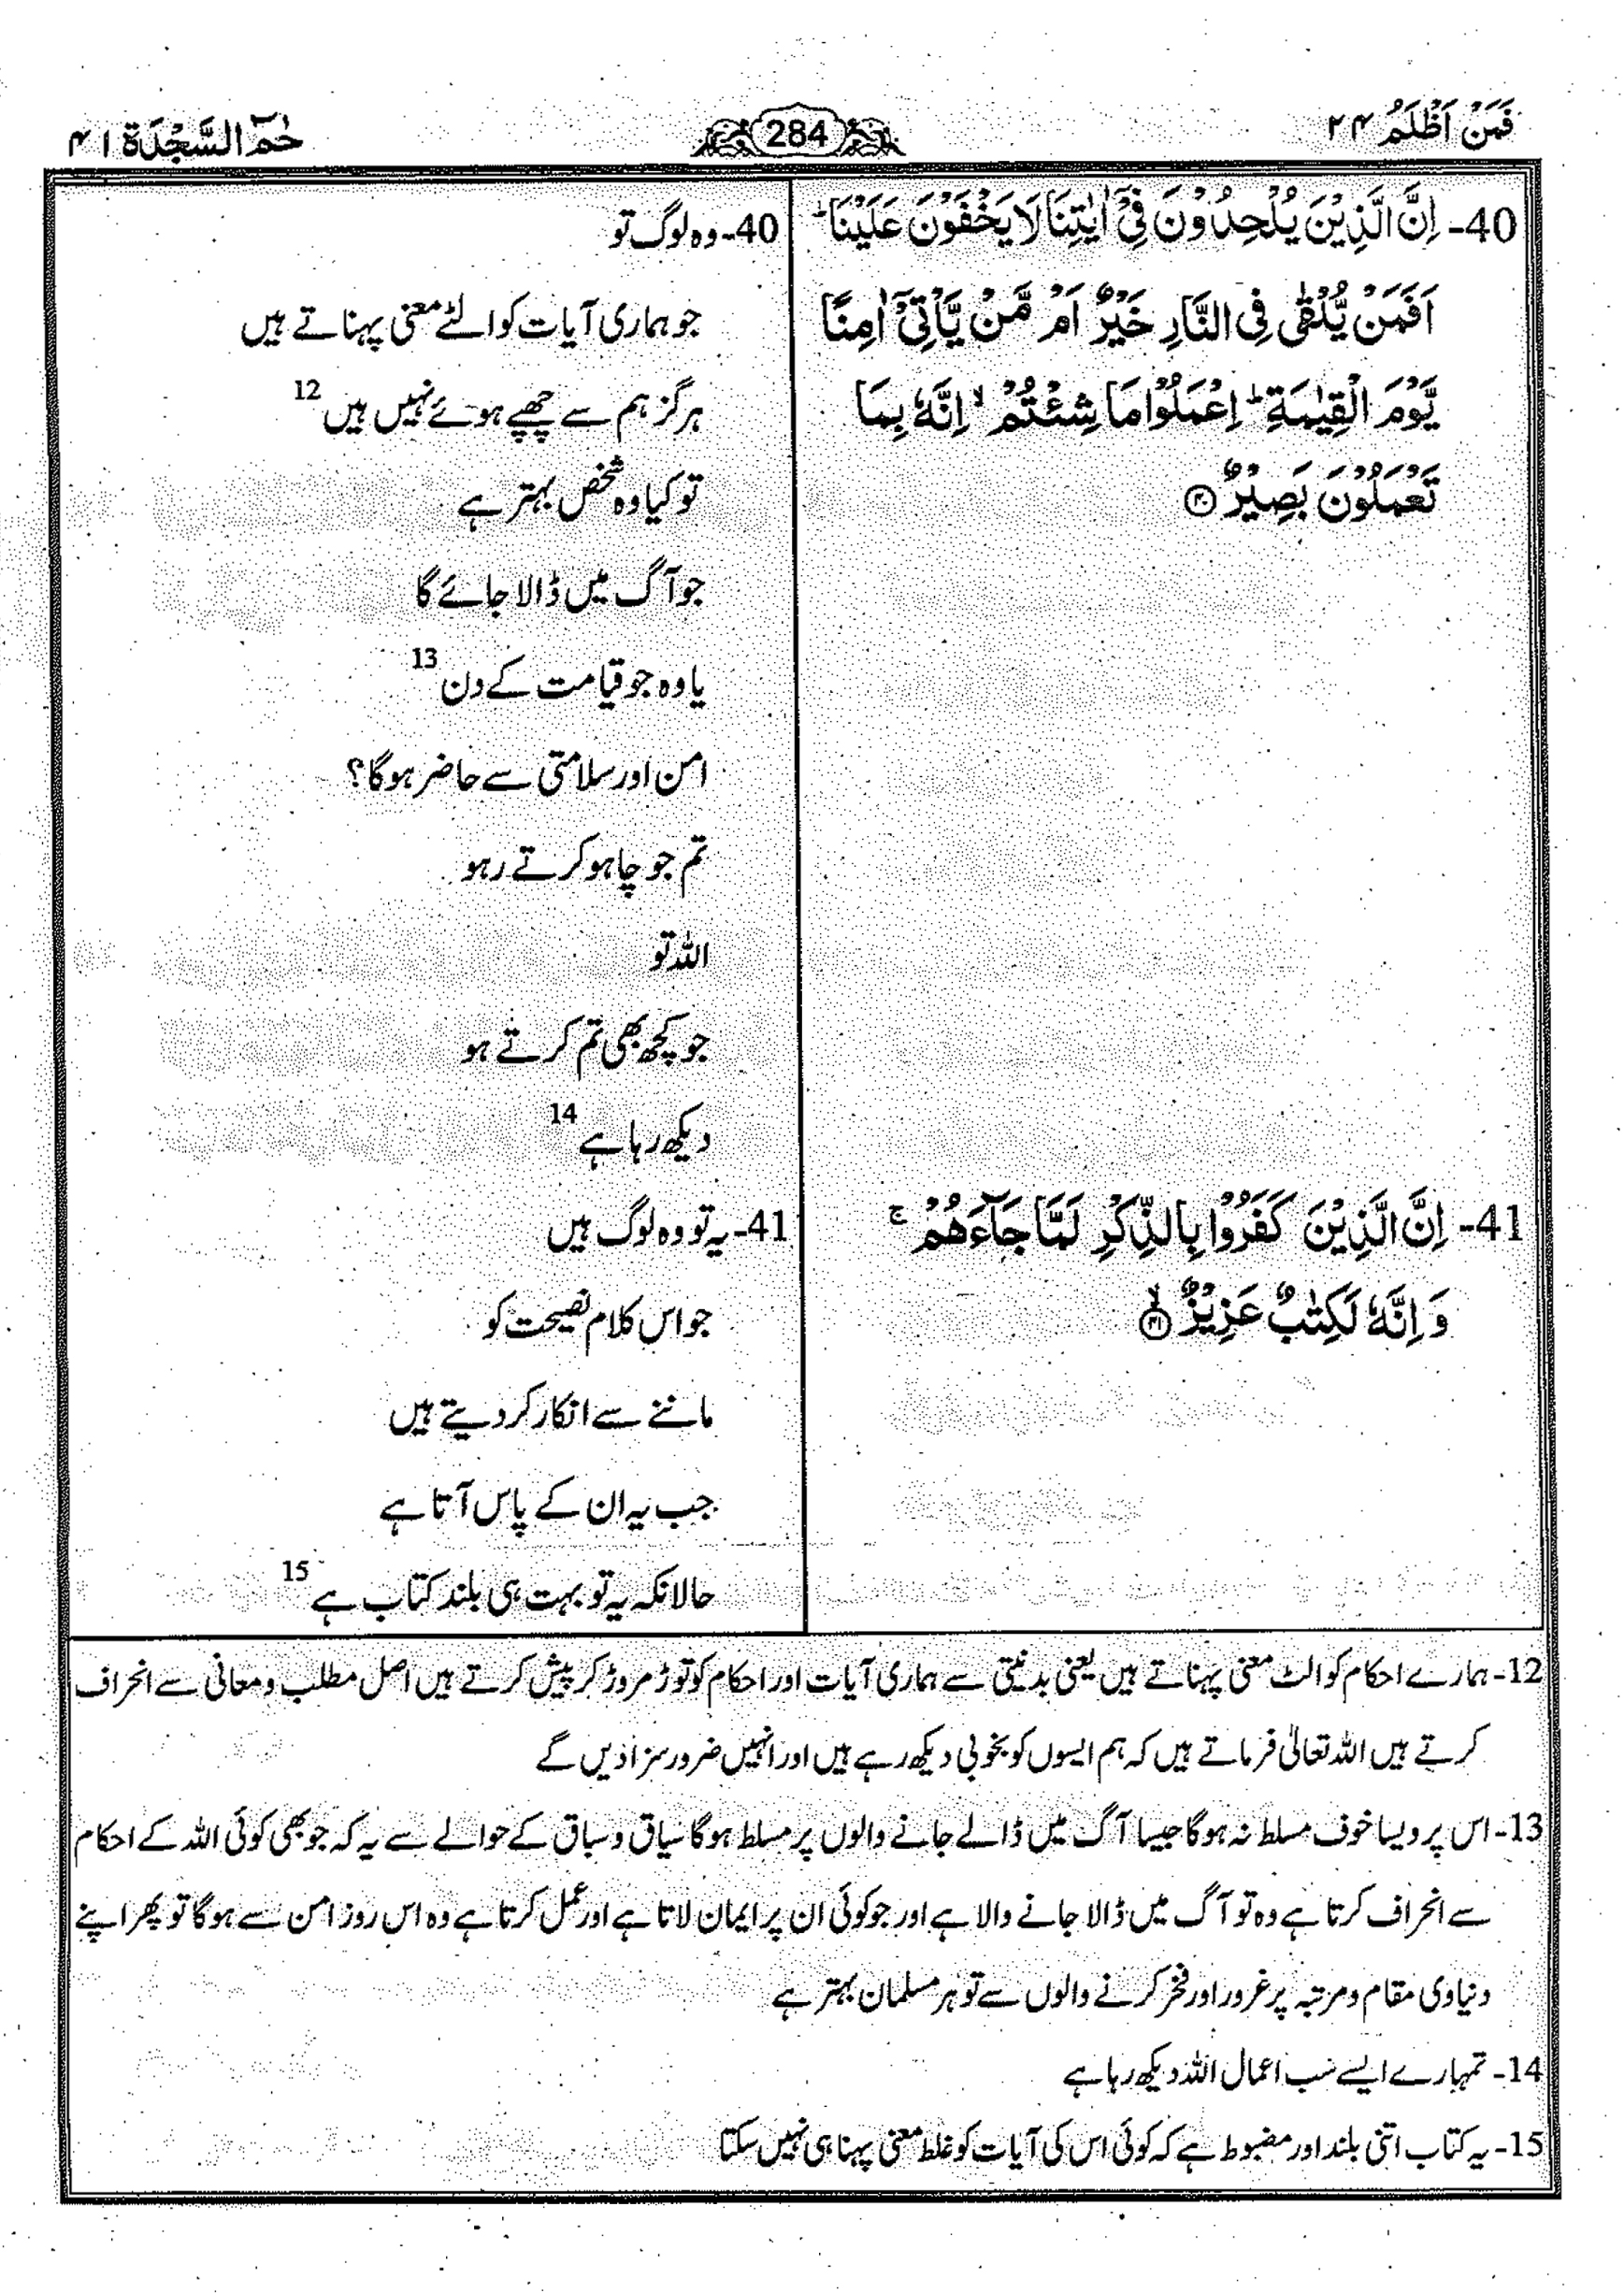 فَمَنْ اَظْلَمُ ۲۴
284
حٰمٓ السَّجْدَۃ ۴۱
40- اِنَّ الَّذِیْنَ یُلْحِدُوْنَ فِیْۤ اٰیٰتِنَا لَا یَخْفَوْنَ عَلَیْنَا ؕ
اَفَمَنْ یُّلْقٰی فِی النَّارِ خَیْرٌ اَمْ مَّنْ یَّاْتِیْۤ اٰمِنًا
یَّوْمَ الْقِیٰمَۃِ ؕ اِعْمَلُوْا مَا شِئْتُمْ ۙ اِنَّهٗ بِمَا
تَعْمَلُوْنَ بَصِیْرٌ ﴿۴۰﴾
40- وہ لوگ تو
جو ہماری آیات کو الٹے معنی پہناتے ہیں
ہرگز ہم سے چھپے ہوئے نہیں ہیں 12
تو کیا وہ شخص بہتر ہے
جو آگ میں ڈالا جائے گا
یا وہ جو قیامت کے دن 13
امن اور سلامتی سے حاضر ہوگا؟
تم جو چاہو کرتے رہو
اللہ تو
جو کچھ بھی تم کرتے ہو
دیکھ رہا ہے 14
41- اِنَّ الَّذِیْنَ کَفَرُوْا بِالذِّکْرِ لَمَّا جَآءَهُمْ ۚ
وَ اِنَّهٗ لَکِتٰبٌ عَزِیْزٌ ﴿ۙ۴۱﴾
41- یہ تو وہ لوگ ہیں
جو اس کلام نصیحت کو
ماننے سے انکار کر دیتے ہیں
جب یہ ان کے پاس آتا ہے
حالانکہ یہ تو بہت ہی بلند کتاب ہے 15
12- ہمارے احکام کو الٹ معنی پہناتے ہیں یعنی بدنیتی سے ہماری آیات اور احکام کو توڑ مروڑ کر پیش کرتے ہیں اصل مطلب و معانی سے انحراف
کرتے ہیں اللہ تعالیٰ فرماتے ہیں کہ ہم ایسوں کو بخوبی دیکھ رہے ہیں اور انہیں ضرور سزا دیں گے
13- اس پر ویسا خوف مسلط نہ ہوگا جیسا آگ میں ڈالے جانے والوں پر مسلط ہوگا سیاق و سباق کے حوالے سے یہ کہ جو بھی کوئی اللہ کے احکام
سے انحراف کرتا ہے وہ تو آگ میں ڈالا جانے والا ہے اور جو کوئی ان پر ایمان لاتا ہے اور عمل کرتا ہے وہ اس روز امن سے ہوگا تو پھر اپنے
دنیاوی مقام و مرتبہ پر غرور اور فخر کرنے والوں سے تو ہر مسلمان بہتر ہے
14- تمہارے ایسے سب اعمال اللہ دیکھ رہا ہے
15- یہ کتاب اتنی بلند اور مضبوط ہے کہ کوئی اس کی آیات کو غلط معنی پہنا ہی نہیں سکتا